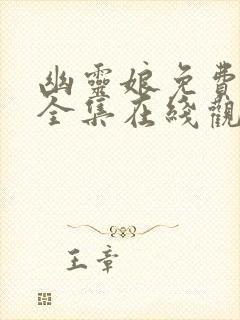 幽靈娘免費
全集在綫觀
王章